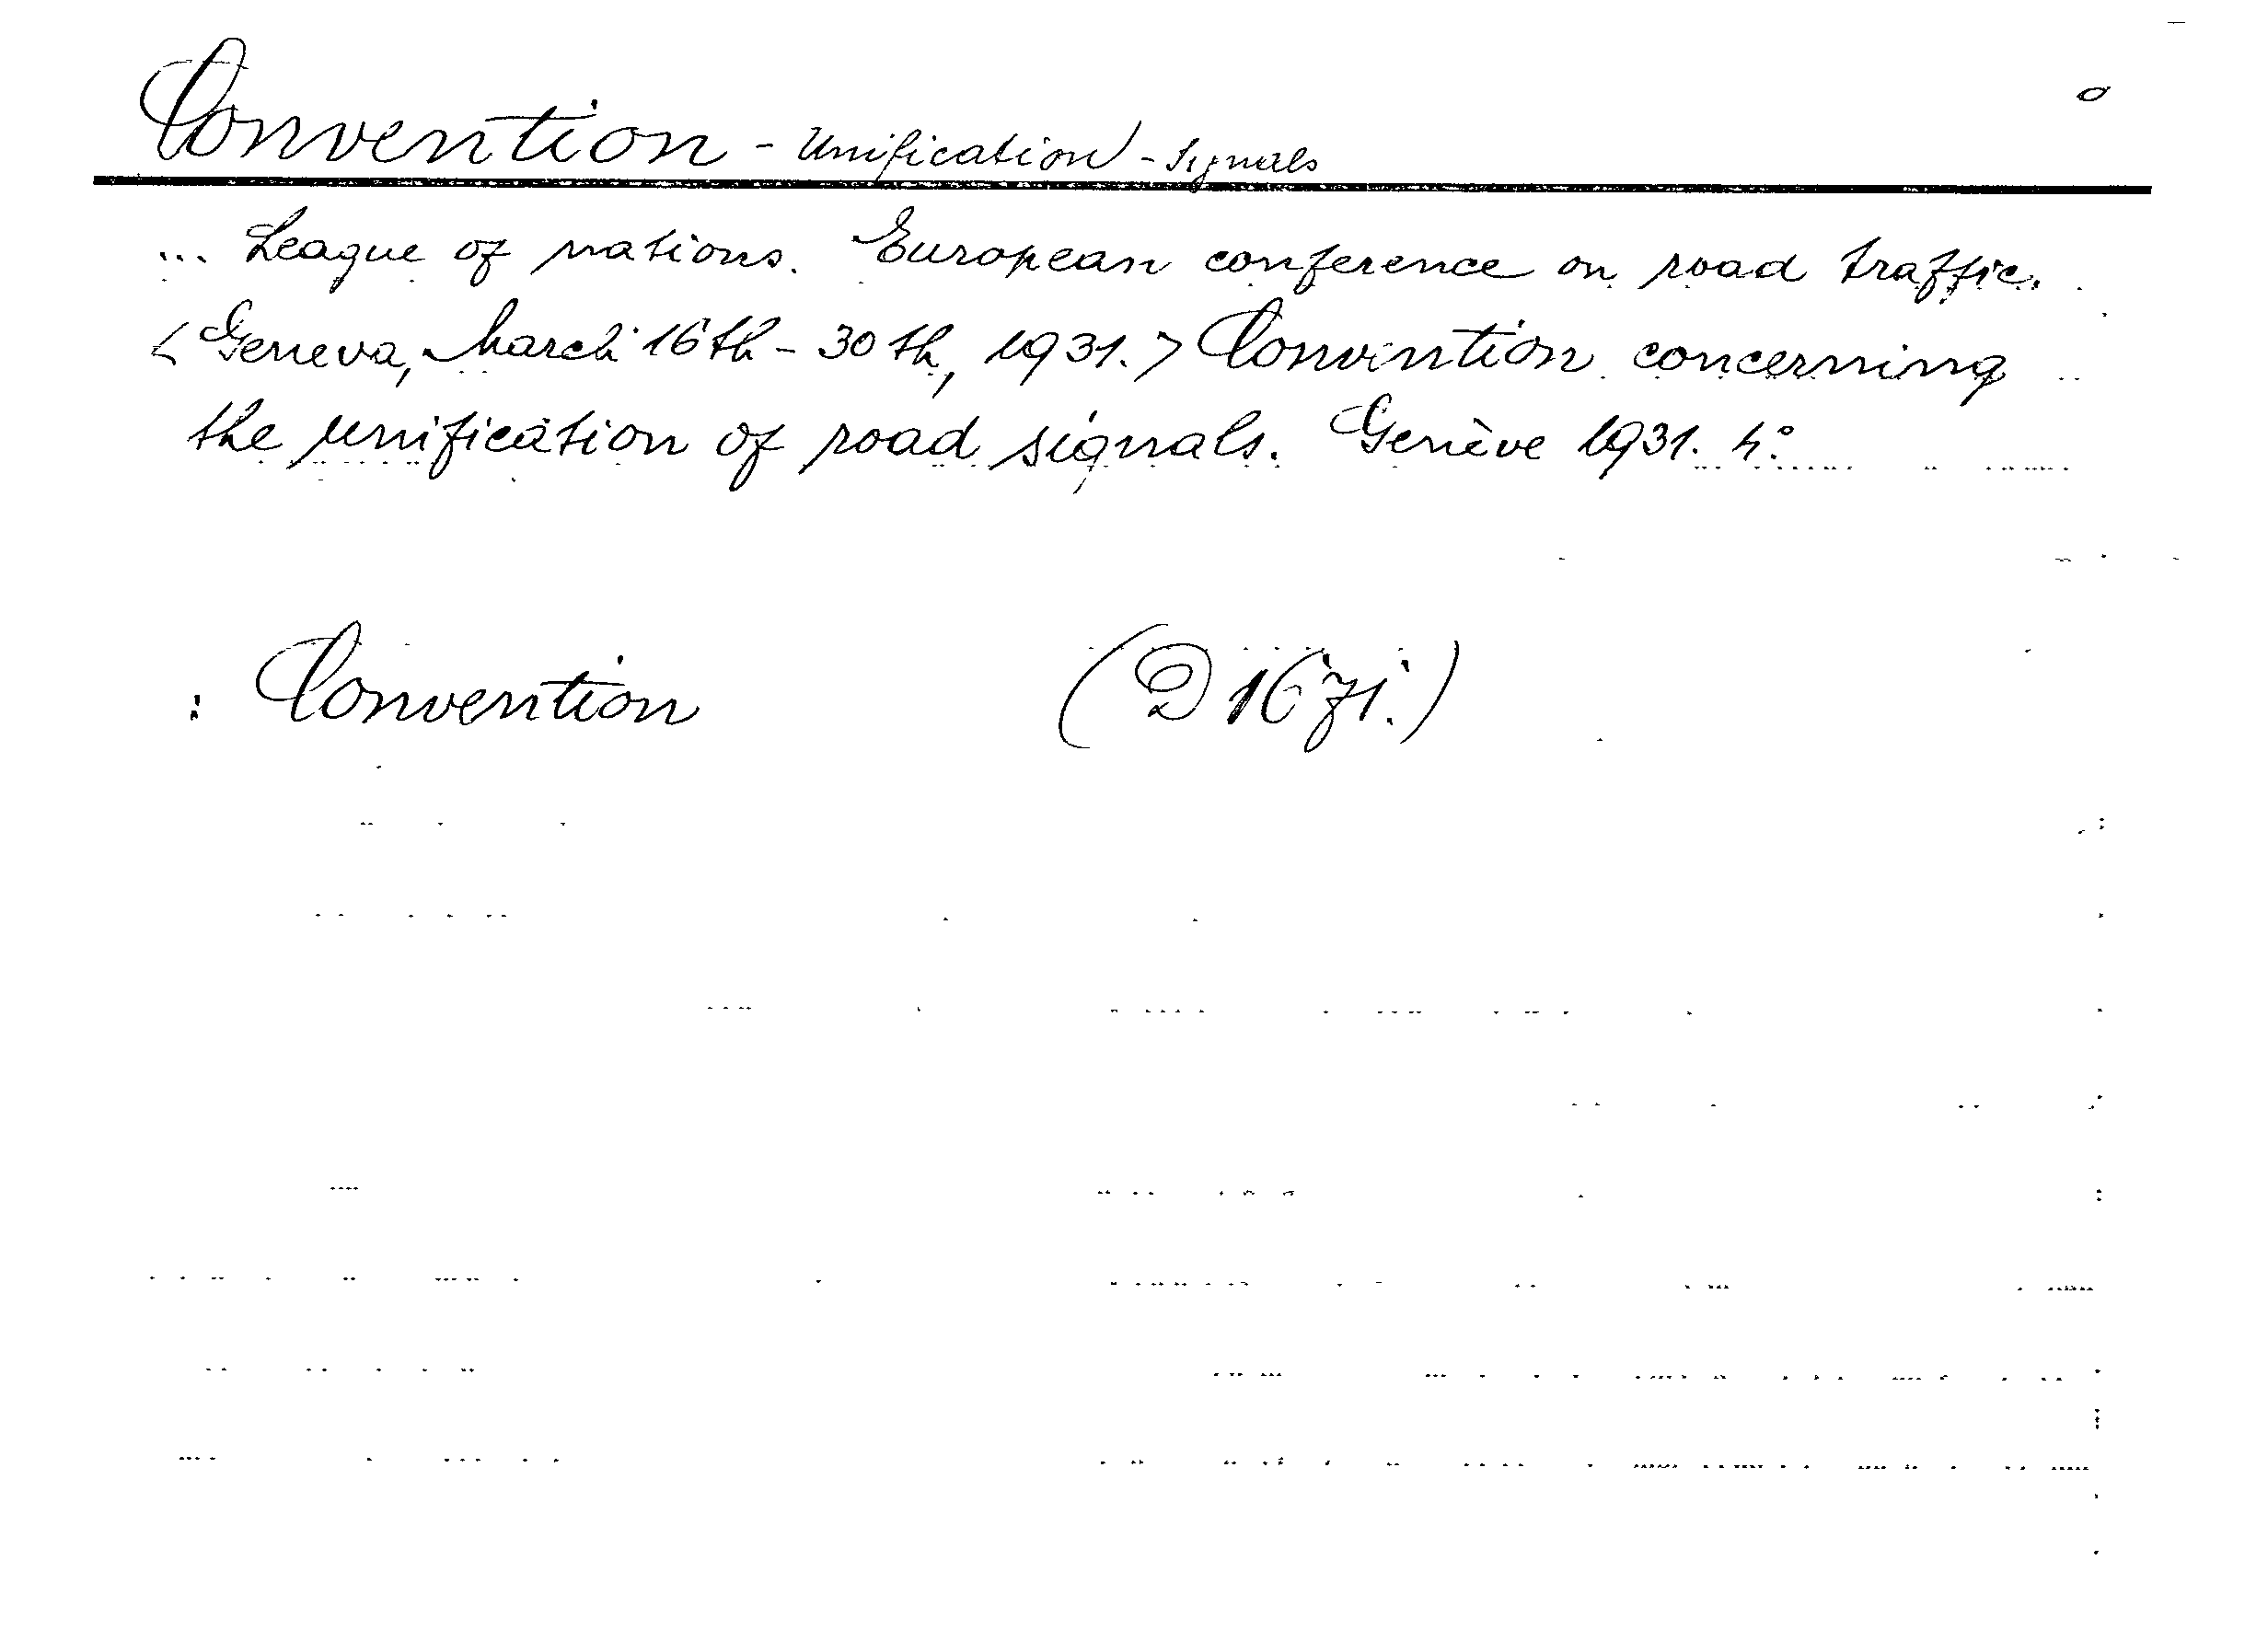 Convention - Unification - Signals
... League of nations. European conference on road traffic.
< Geneva, March 16th - 30th, 1931. > Convention concerning
the unification of road signals. Genève 1931. 4°
: Convention (D 1671.)